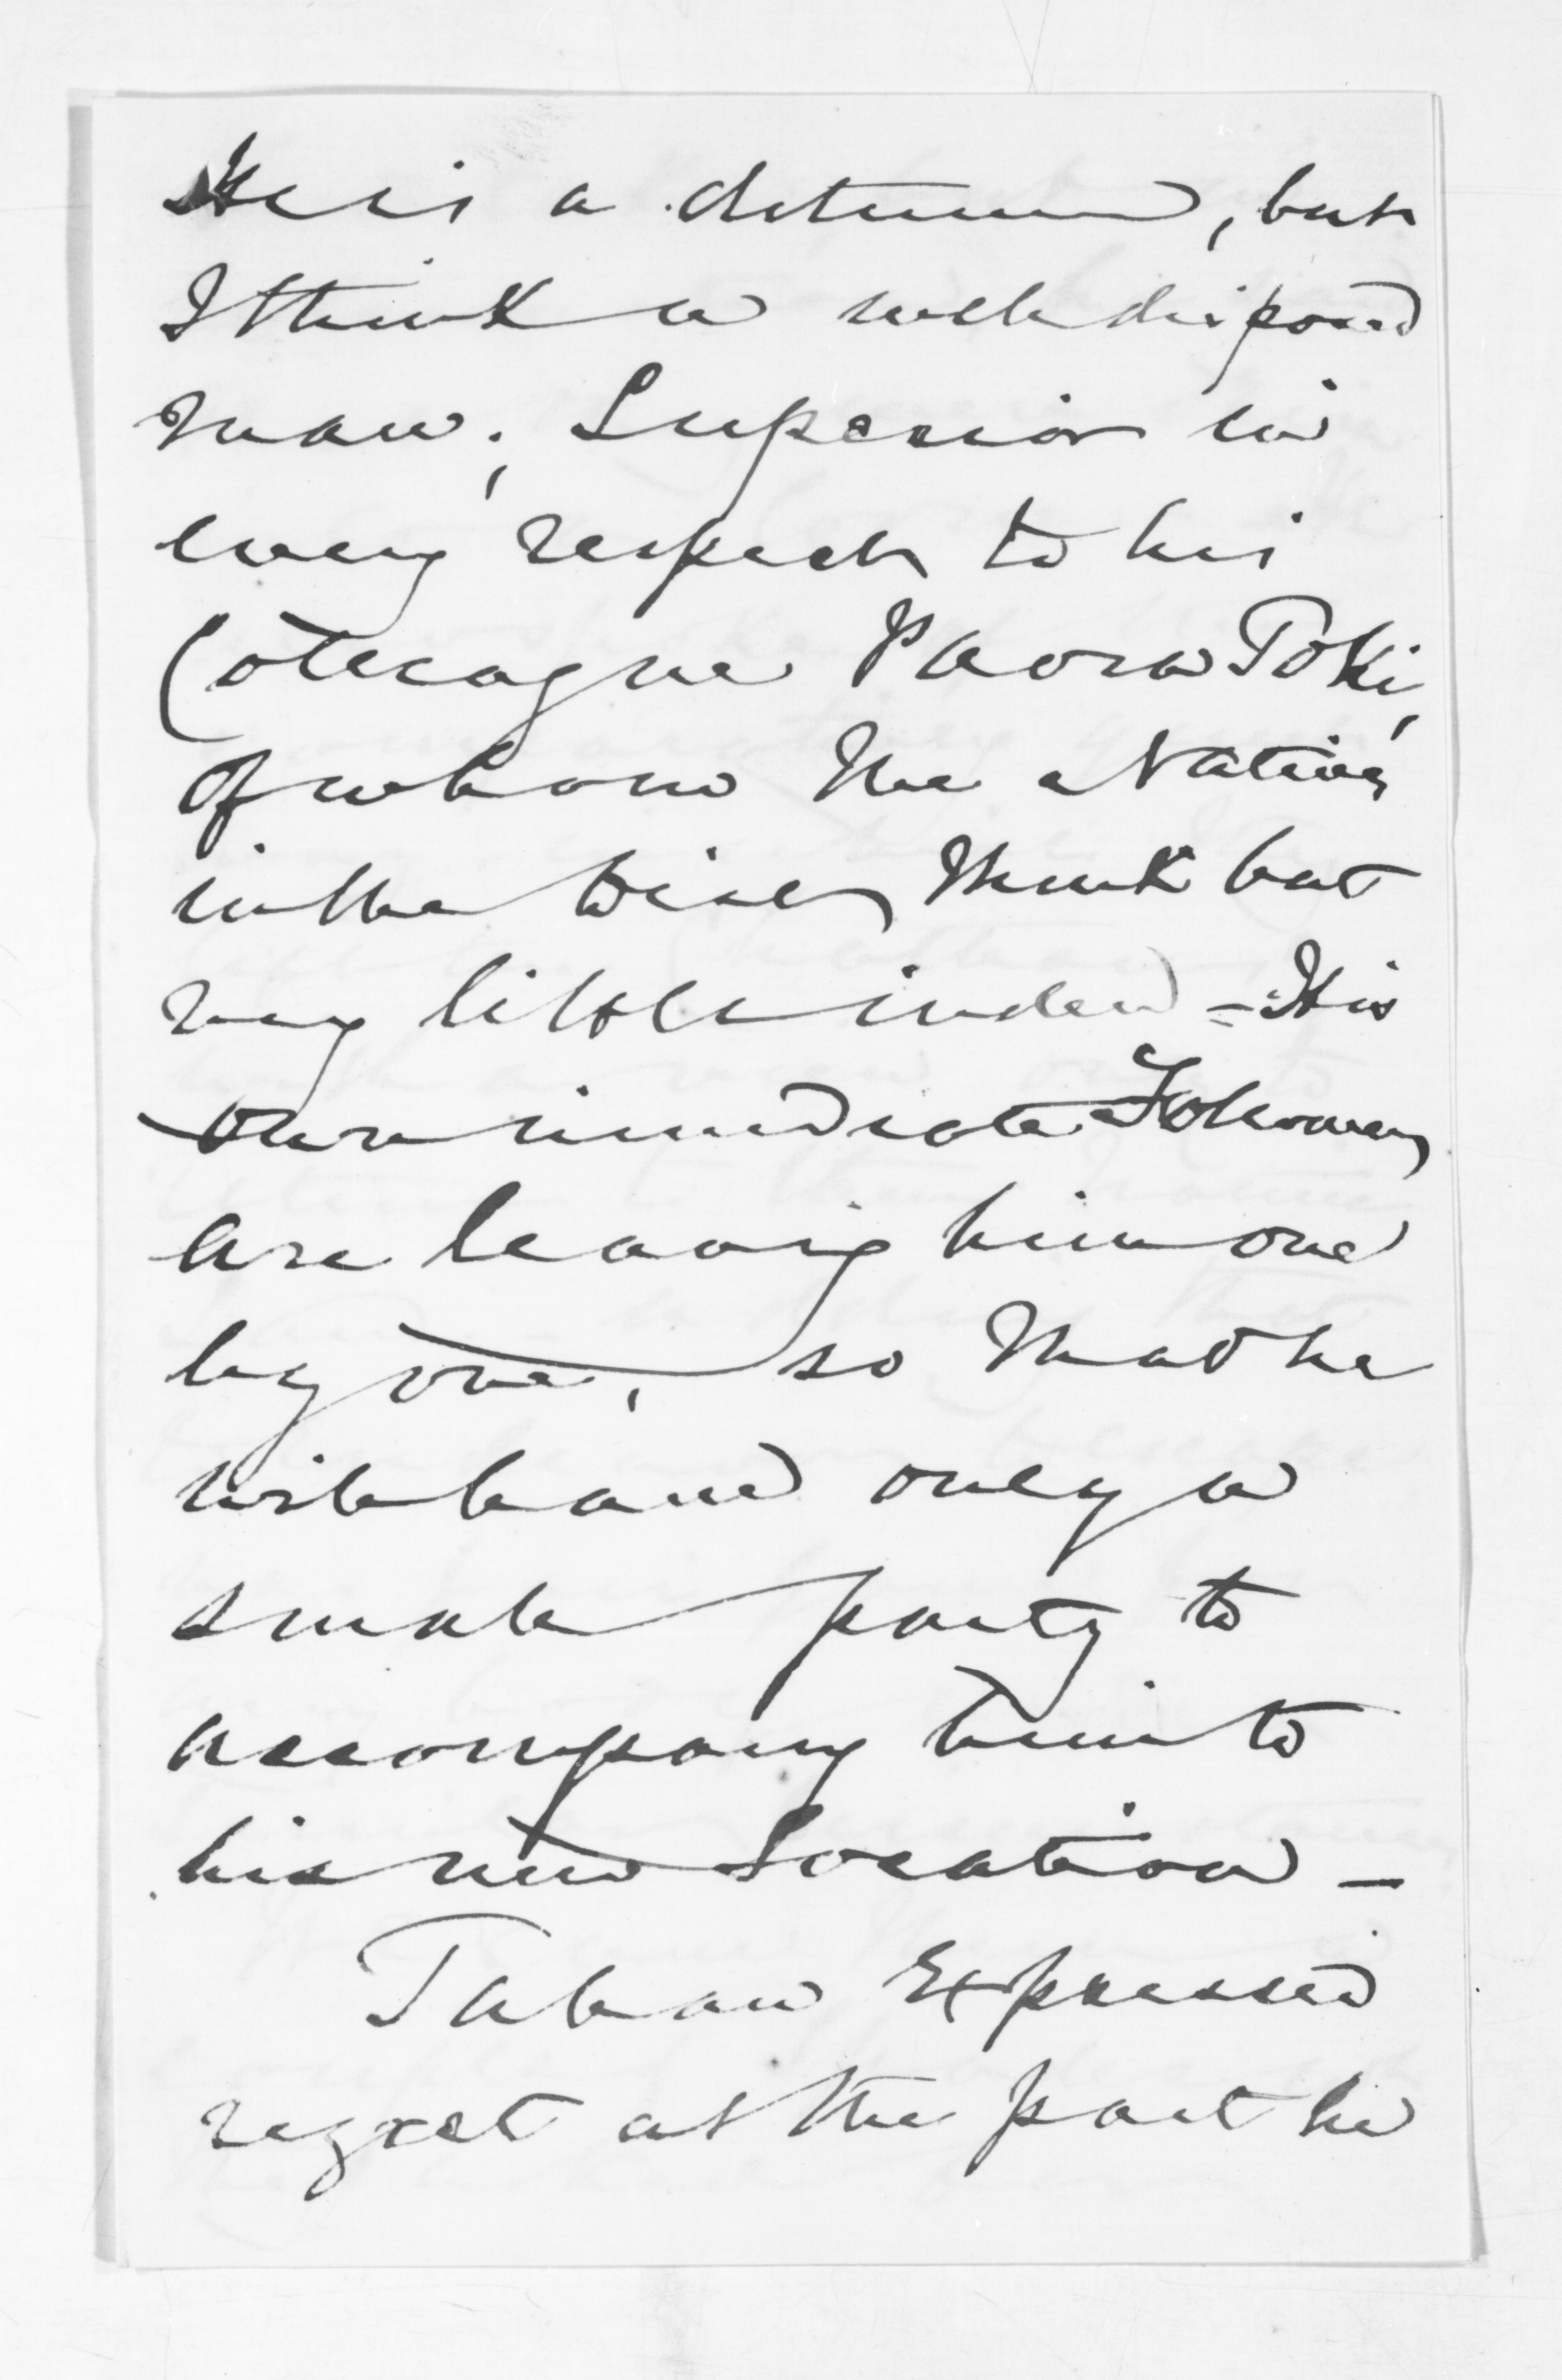 He is a determined, but
I think a well disposed
man; Superior in
every respect to his
Coleague Paora Toki,
of whom the Natives
in the Tribe, think but
very little indeed - His
own immediate Followers
are leaving him one
by one, so that he
will have only a
small party to
accompany him to
his new Location -
Tahau Expressed
regret at the part he